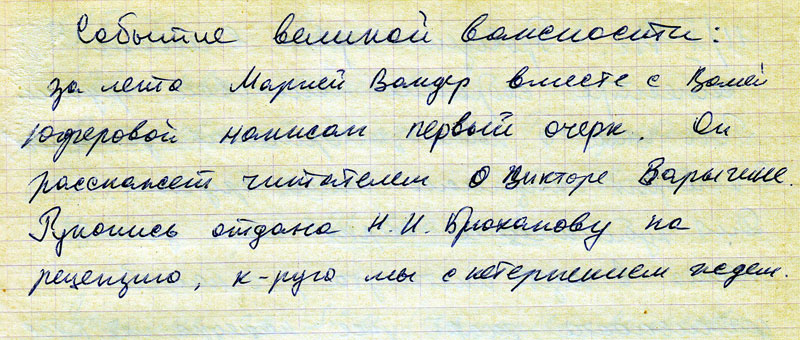 Событие великой важности:
за лето Марией Вандер вместе с Валей
Юферовой написан первый очерк. Он
расскажет читателем о Викторе Варыгине.
Рукопись отдана Н.И. Брюханову на
рецензию, к-рую мы с нетерпением ждем.